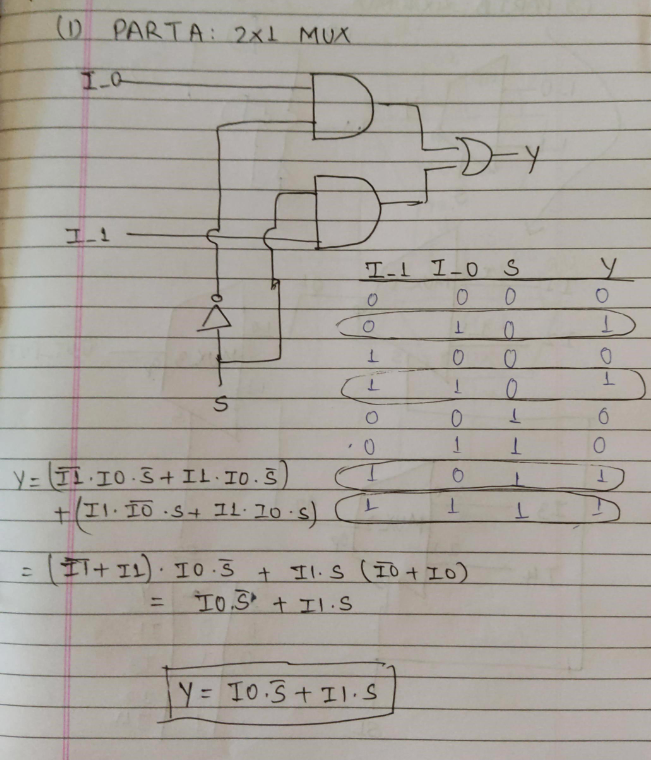 (1) PARTA: 2x1 MUX
I_0
Y
I_1
S
I_1 I_0 S Y
0 0 0 0
0 1 0 1
1 0 0 0
1 1 0 1
0 0 1 0
0 1 1 0
1 0 1 1
1 1 1 1
Y = (I̅1̅·I0·S̅ + I1·I0·S̅)
+ (I1·I̅0̅·S + I1·I0·S)
= (I̅1̅ + I1)·I0·S̅ + I1·S (I̅0̅ + I0)
= I0·S̅ + I1·S
Y = I0·S̅ + I1·S